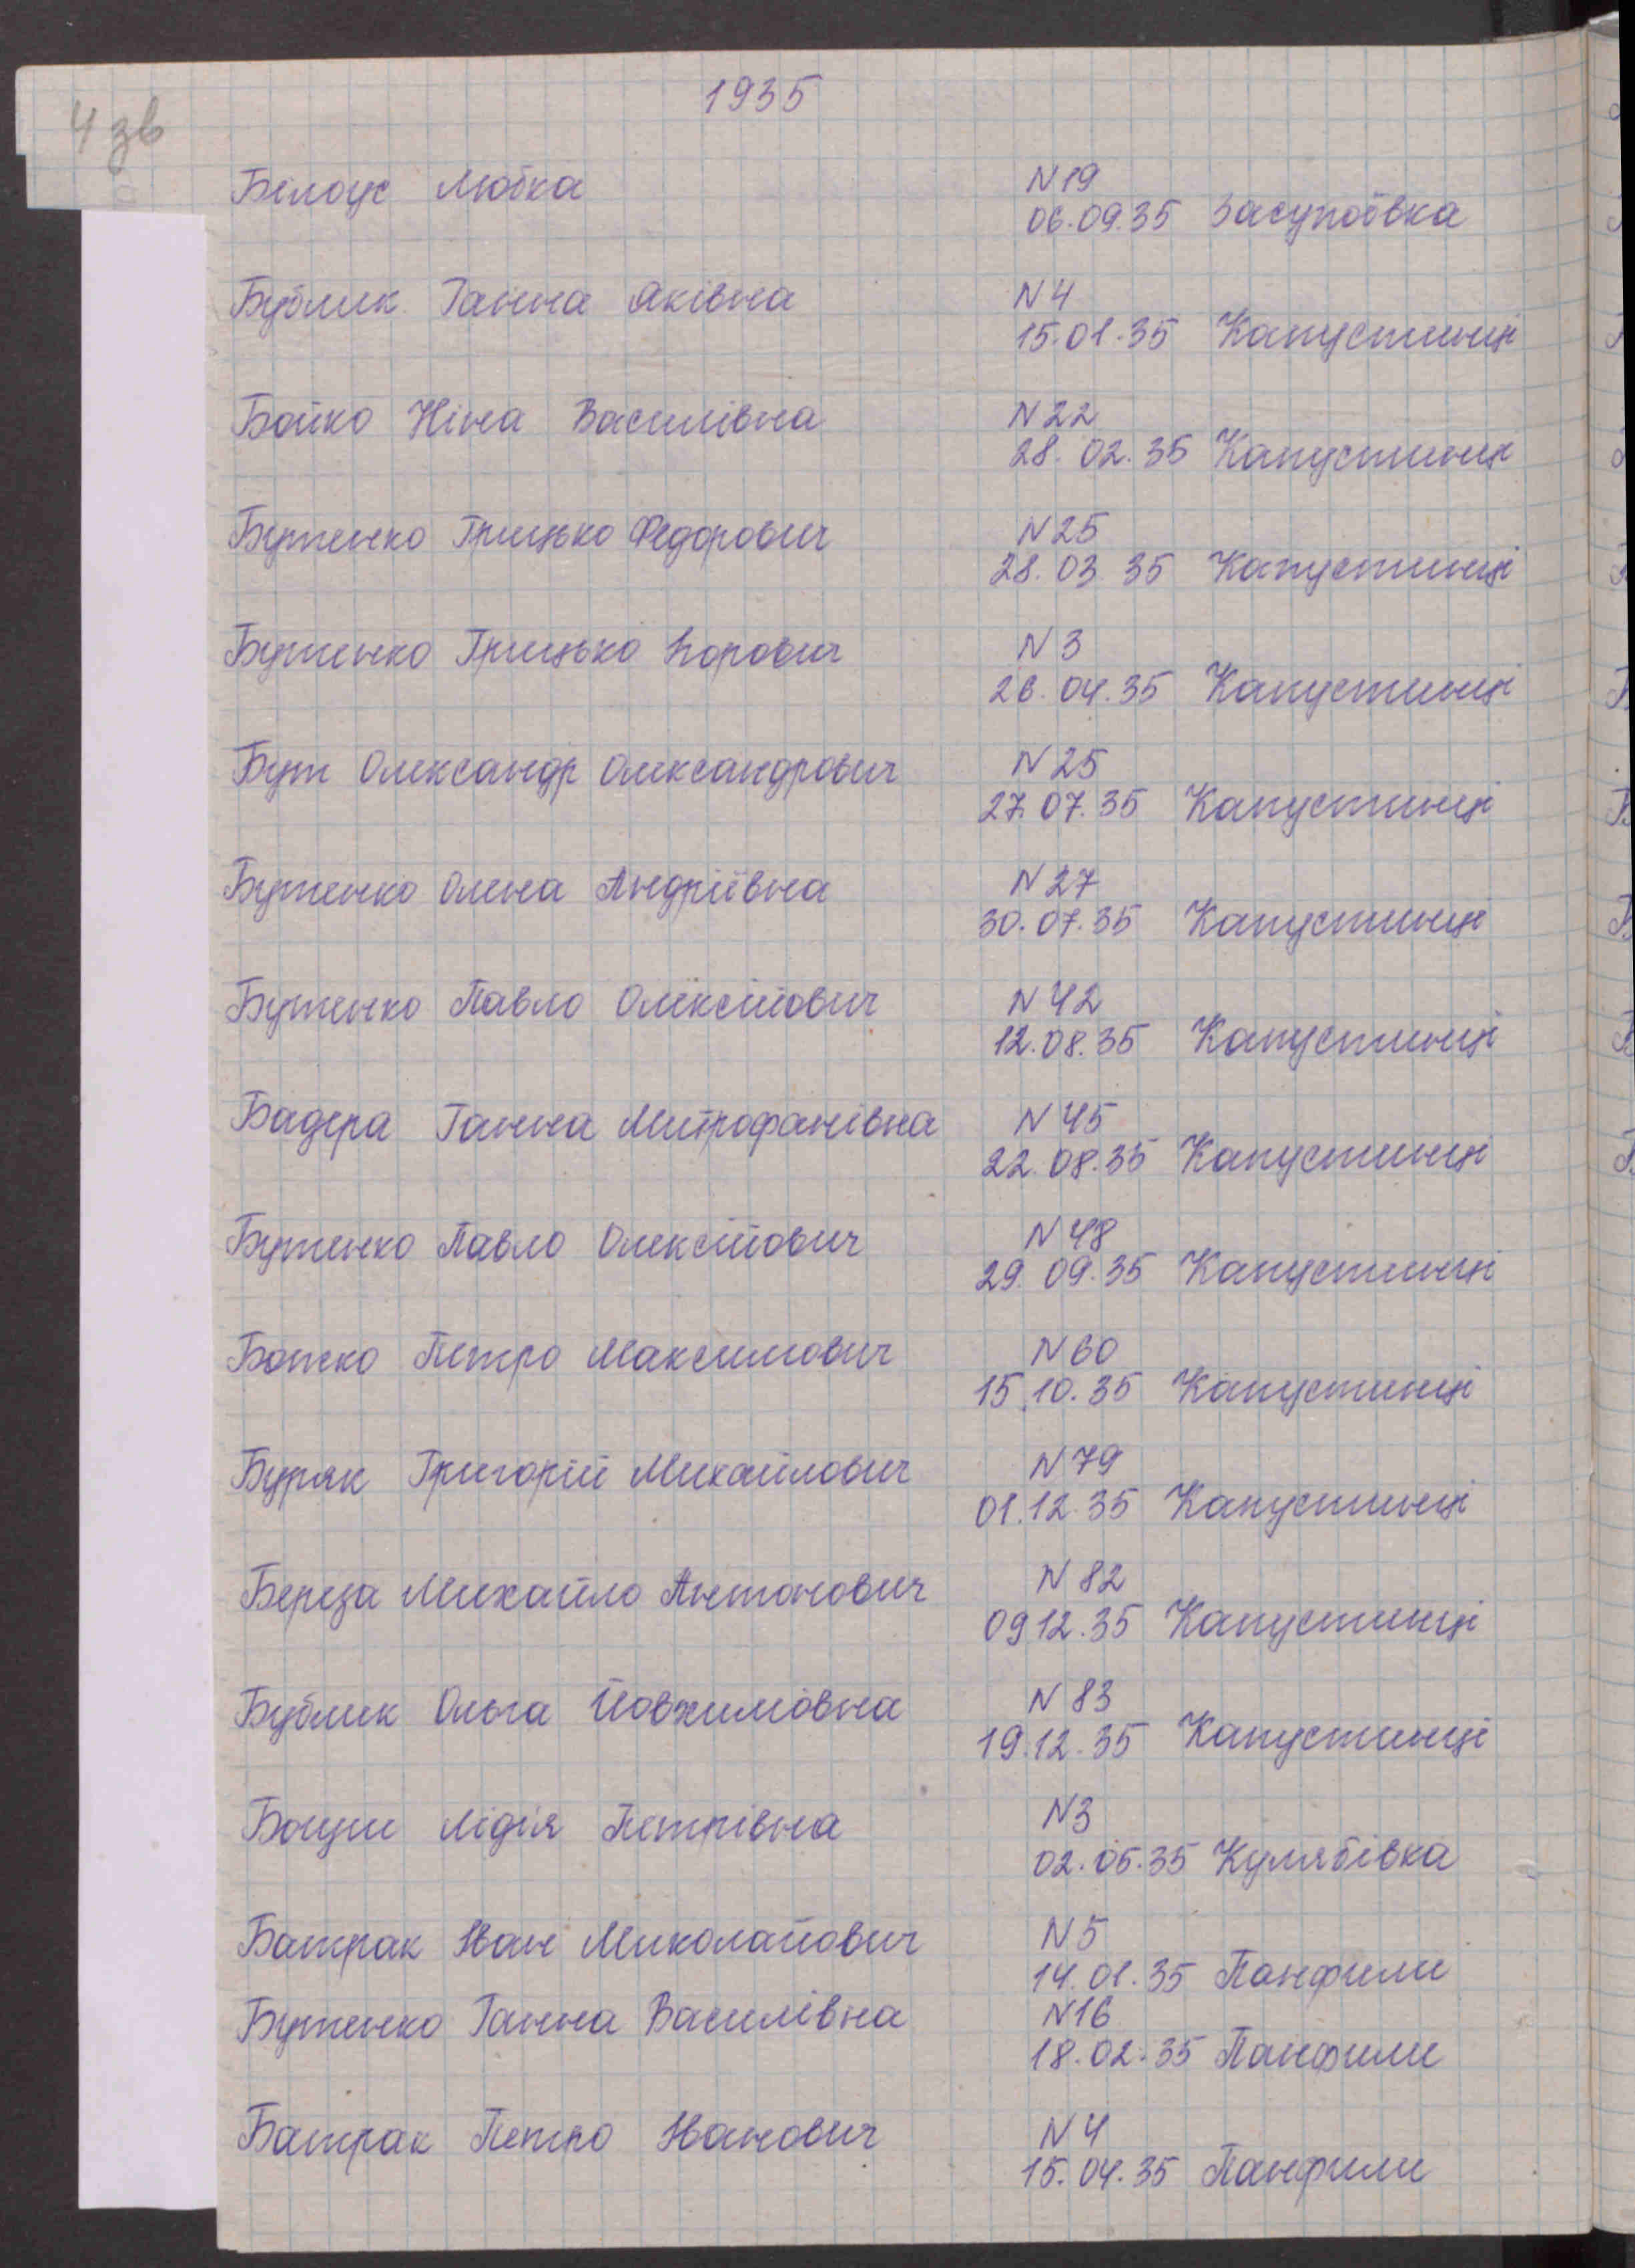 1935
4 зв
Білоус Любка N 19
06.09.35 Засупоївка
Бублик Ганна Яківна N 4
15.01.35 Капустинці
Бойко Ніна Василівна N 22
28.02.35 Капустинці
Бутенко Грицько Федорович N 25
28.03 35 Капустинці
Бутенко Грицько N 3
26.04.35 Капустинці
Бут Олександр Олександрович N 25
27.07.35 Капустинці
Бутенко Олена Андріївна N 27
30.07.35 Капустинці
Бутенко Павло Олексійович N 42
12.08.35 Капустинці
Бадера Ганна Митрофанівна N 45
22.08.35 Капустинці
Бутенко Павло Олексійович N 48
29.09.35 Капустинці
Петро Максимович N 60
15.10.35 Капустинці
Буряк Григорій Михайлович N 79
01.12.35 Капустинці
Береза Михайло Антонович N 82
09 12.35 Капустинці
Бублик Ольга Йовхимовна N 83
19.12.35 Капустинці
Лідія Петрівна N 3
02.05.35 Кулябівка
Батрак Іван Миколайович N 5
14.01.35 Панфили
Бутенко Ганна Василівна N 16
18.02.35 Панфили
Батрак Петро Іванович N 4
15.04.35 Панфили